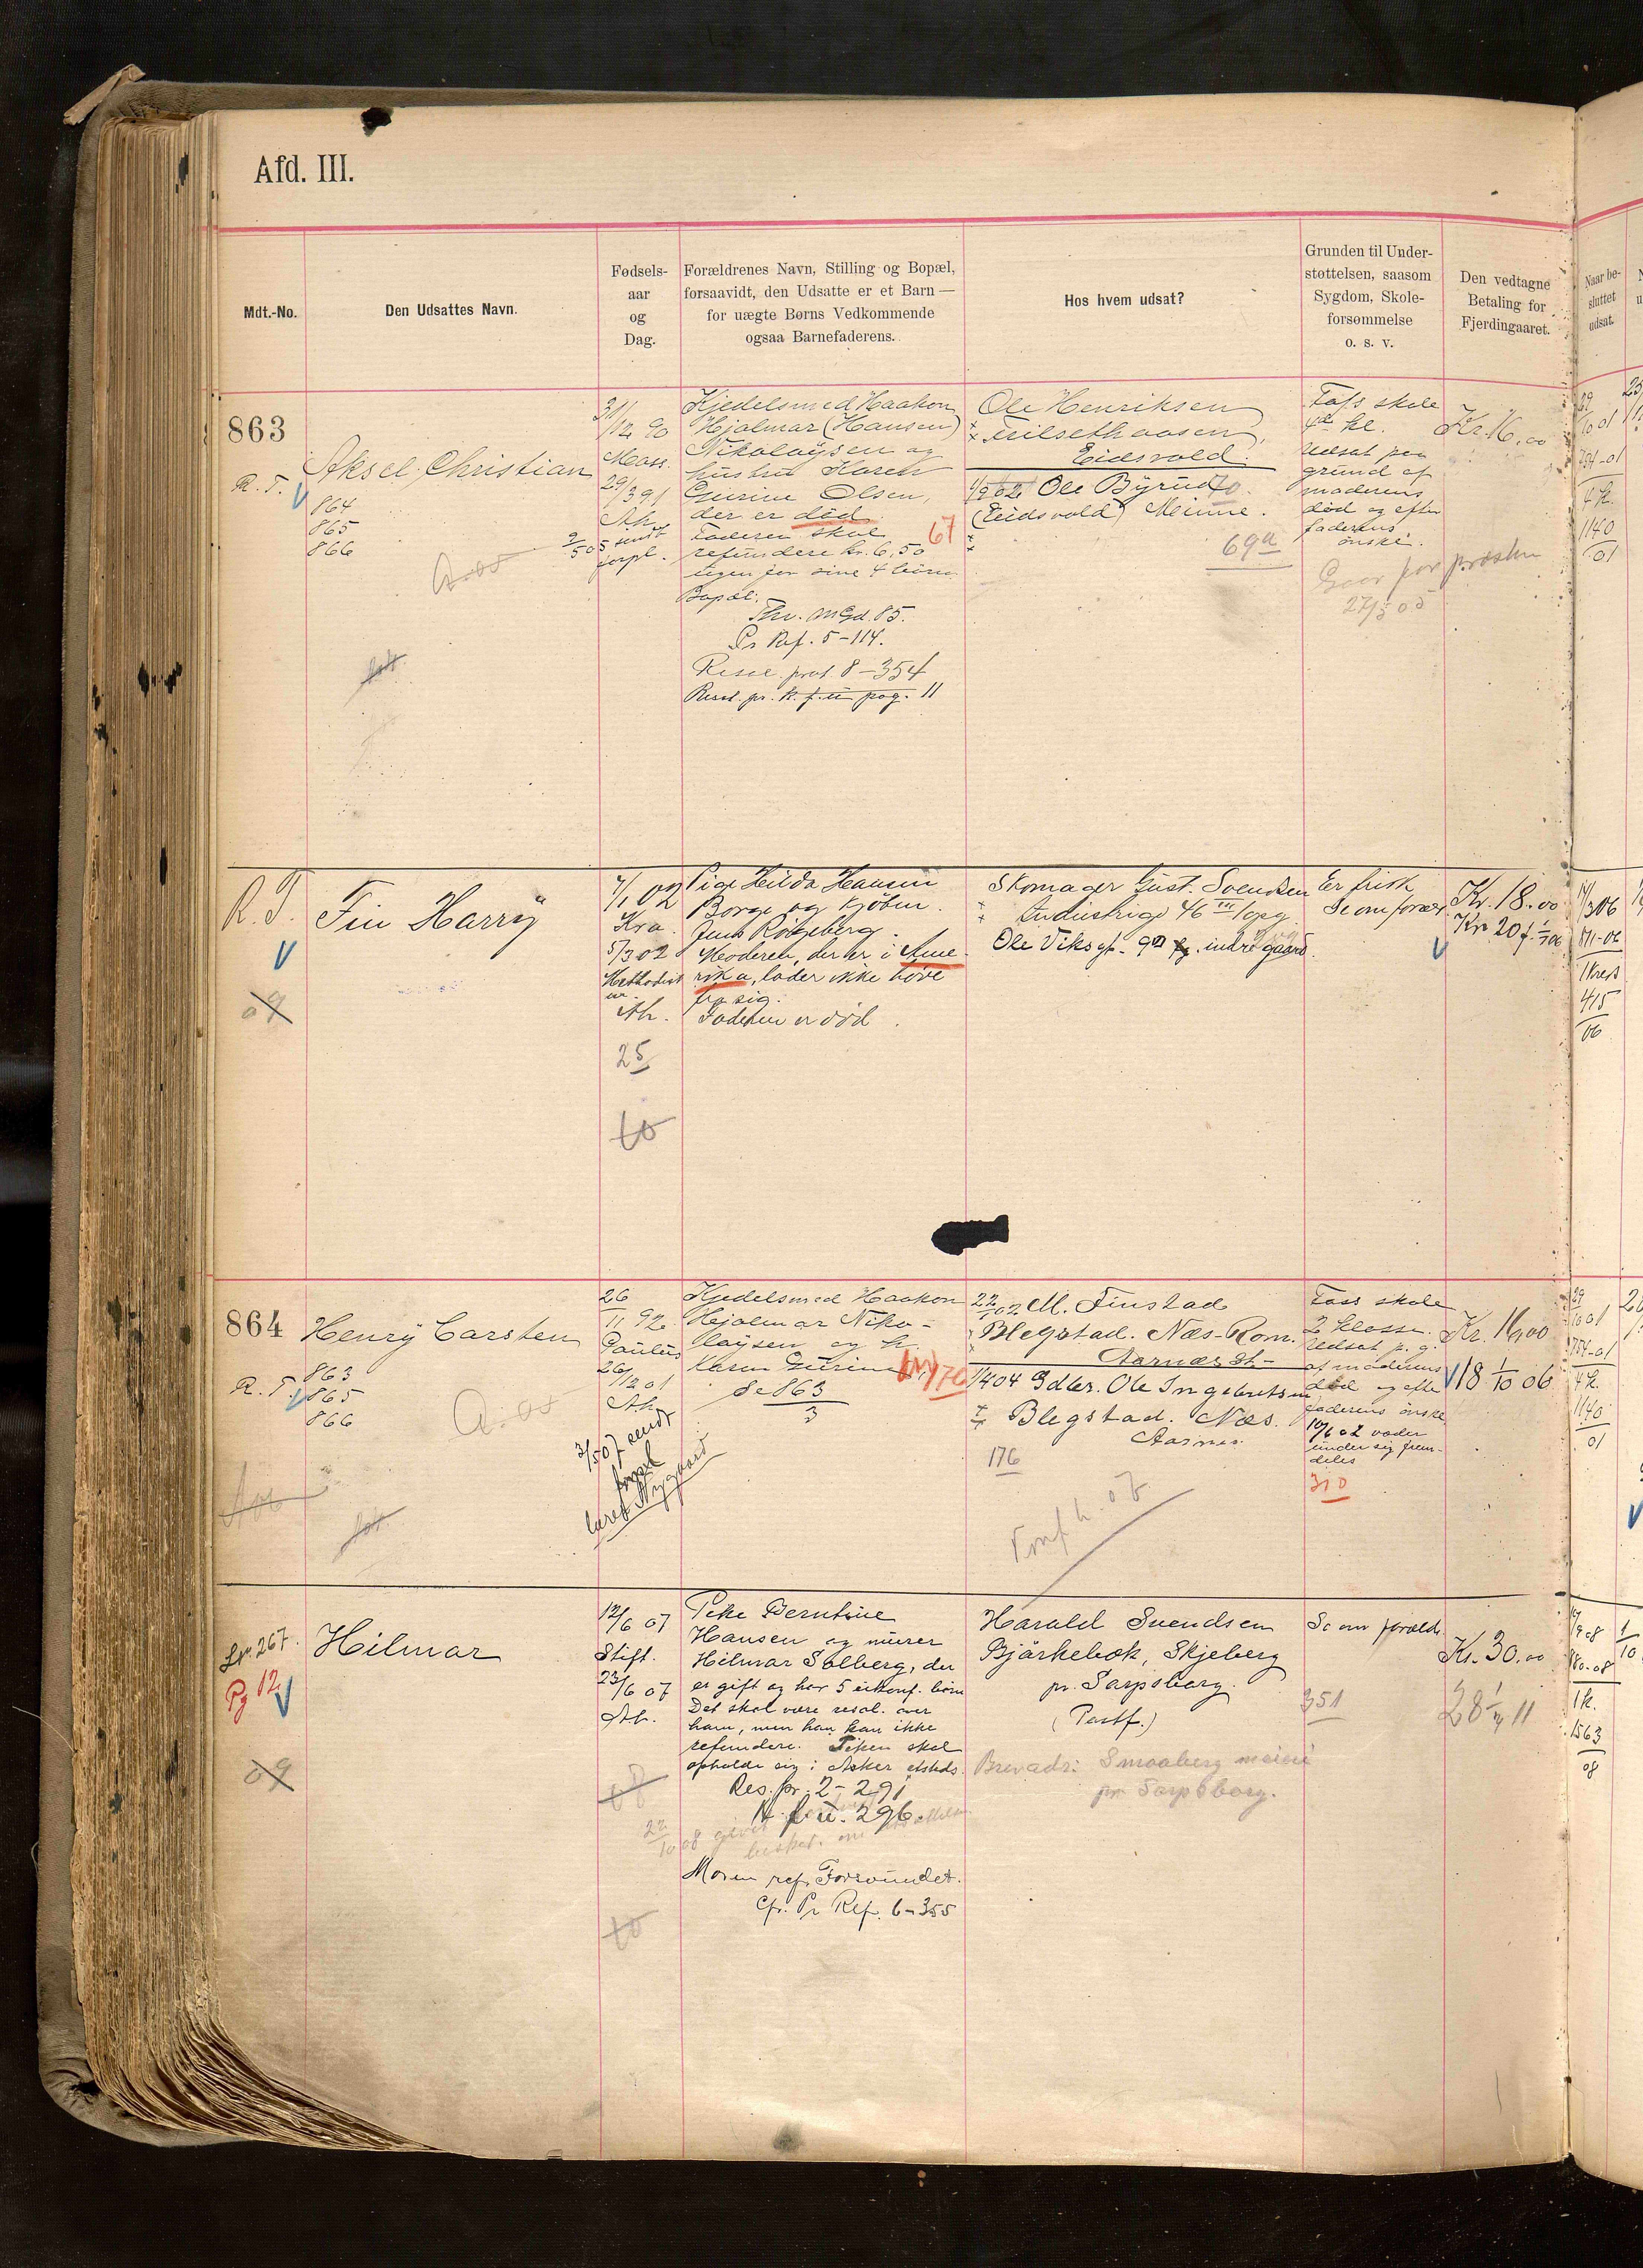 Afd. III.
Mdt.-No.
Den Udsattes Navn.
Fødsels-
aar
og
Dag.
Forældrenes Navn, Stilling og Bopæl,
forsaavidt, den Udsatte er et Barn —
for uægte Børns Vedkommende
ogsaa Barnefaderens.
Hos hvem udsat?
Grunden til Under-
støttelsen, saasom
Sygdom, Skole-
forsømmelse
o. s. v.
Den vedtagne
Betaling for
Fjerdingaaret.
Naar be-
sluttet
udsat.
863
R. T.
Aksel Christian
864
865
866
31/12 90
Moss.
29/3 91
Ah.
Kjedelsmed Haakon
Hjalmar (Hansen)
Nikolaysen og
hustru Karen
Gurine Olsen,
der er død.
Faderen skal
refundere kr. 6,50
ugen for sine 4 børn
Bopæl:
Thv. Mgd. 85.
Pr Ref. 5-114.
Resol. prot 8-354
Resol. pr. H. f. u pag. 11
67
Ole Henriksen
Eidsvold.
Ole Byrud
(Eidsvold) Minne.
69a
Fass skole
4de kl.
Udsat paa
grund af
moderens
død og efter
faderens
ønske.
Gaar for præsten
27/5 05
Kr. 16,00
1140
01
R. T.
Fin Harry
09
7/1 02
Kra.
5/3 02
Methodist
Ah.
25
Pige Hilda Hansen
Borge og kjøbm.
Jens Ringeberg.
Moderen, der er i Ame-
rika, lader ikke høre
fra sig.
Faderen er død.
Skomager Gust. Svendsen
Industrigd 46 III opg.
Ole Viks gt. 9 indre gaard.
Er frisk
Se om foræl
Kr. 18.00
Kr 20 f. 1/7 06
415
06
864
R. T.
Henry Carsten
863
865
866
26
11 92
Paulus
26/12 01
Ah.
Kjedelsmed Haakon
Hjalmar Niko-
laysen og h.
Karen Gurine
Se 863
3
70
M. Finstad
Blegstad. Næs-Rom.
Aarnæs St-
1/4 04 Gdbr. Ole Ingebretsen
Blegstad. Næs.
Aarnes.
176
Konf. h. 07
Fass skole
2 klasse.
Udsat p. g.
af moderens
død og efter
faderens ønske
under sig frem-
deles
310
Kr. 16,00
18 1/10 06
1140
01
Lp. 267.
Pg 12
Hilmar
09
12/6 07
Stift.
23/6 07
Ah.
Pike Berntine
Hansen og murer
Hilmar Solberg, der
er gift og har 5 ukonf. børn
Det skal være resol. over
ham, men han kan ikke
refundere. Piken skal
opholde sig i Asker etsteds.
Res. pr. 2-291
H. f. u. 296
Moren ref. Forsvundet.
Cfr. Pr Ref. 6-355
Harald Svendsen
Bjørkebæk, Skjeberg
pr. Sarpsborg.
(Postf.)
Brevadr: Smaaberg meieri
pr. Sarpsborg.
Se om foræld.
351
Kr. 30.00
28 1/4 11
1563
08